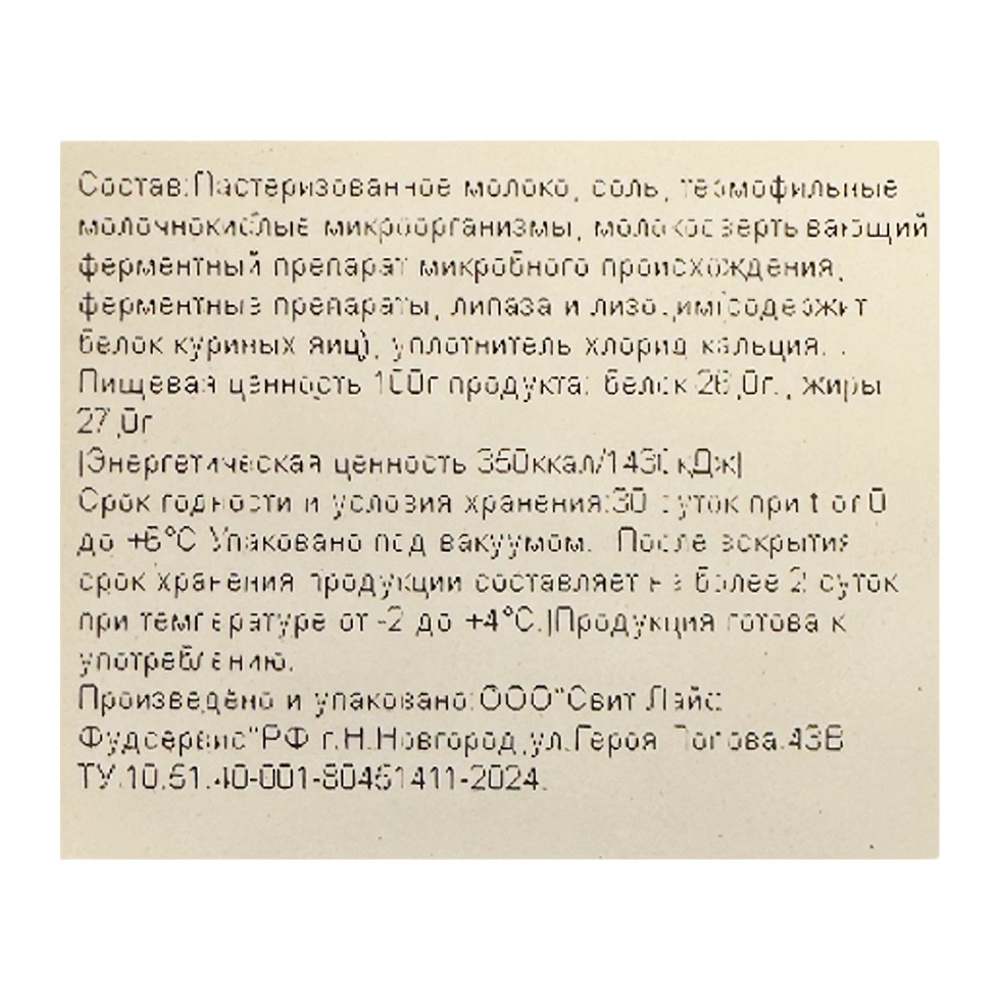 Состав:Пастеризованное молоко, соль, термофильные
молочнокислые микроорганизмы, молокосвертывающий
ферментный препарат микробного происхождения,
ферментные препараты, липаза и лизоцим(содержит
белок куриных яиц), уплотнитель хлорид кальция. .
Пищевая ценность 100г продукта: белок 26,0г., жиры
27,0г
|Энергетическая ценность 350ккал/1430 кДж|
Срок годности и условия хранения:30 суток при t от 0
до +6°С Упаковано под вакуумом. После вскрытия
срок хранения продукции составляет не более 2 суток
при температуре от -2 до +4°С.|Продукция готова к
употреблению.
Произведено и упаковано:ООО"Свит Лайс
Фудсервис"РФ г.Н.Новгород,ул.Героя Попова.43В
ТУ.10.51.40-001-80451411-2024.